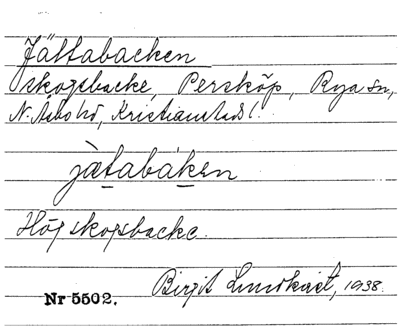 Jättabacken
skogsbacke, Perskōp, Rya sn,
N. Åsbo hd, Kristianstads l.
jätabáken
Hög skogsbacke.
Birgit Lundkvist, 1938.
Nr 5502.